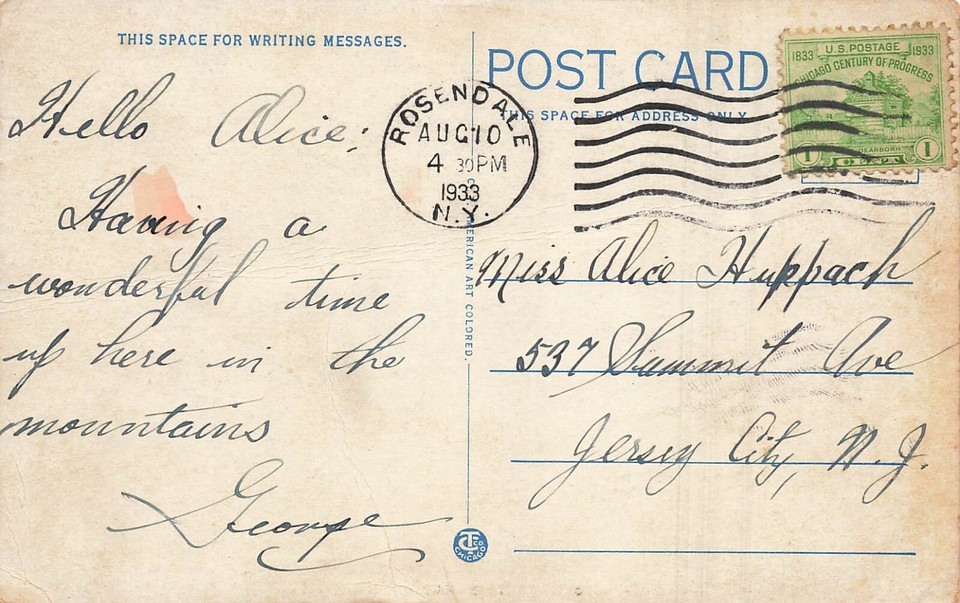 THIS SPACE FOR WRITING MESSAGES.
Hello Alice;
Having a
wonderful time
up here in the
mountains
George
POST CARD
THIS SPACE FOR ADDRESS ONLY
ROSENDALE
AUG 10
4 30PM
1933
N.Y.
1833 U.S. POSTAGE 1933
CHICAGO CENTURY OF PROGRESS
DEARBORN
1 1
Miss Alice Huppach
537 Summit Ave
Jersey City, N.J.
AMERICAN ART COLORED.
CHICAGO